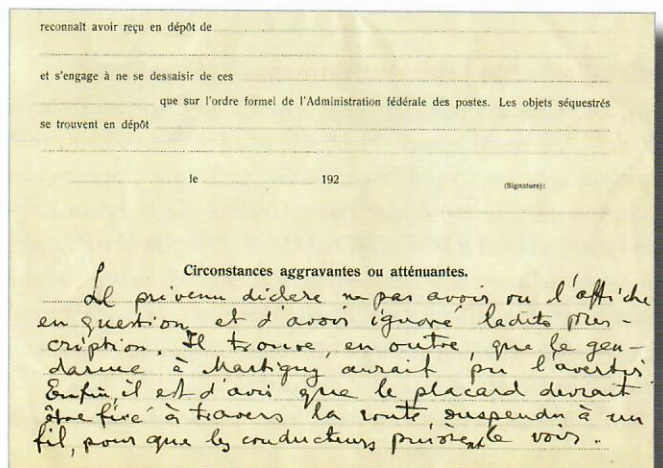 reconnaît avoir reçu en dépôt de
et s'engage à ne se dessaisir de ces
que sur l'ordre formel de l'Administration fédérale des postes. Les objets séquestrés
se trouvent en dépôt
le 192 (Signature):
Circonstances aggravantes ou atténuantes.
Le prévenu déclare ne pas avoir vu l'affiche
en question et d'avoir ignoré ladite pres-
cription. Il trouve, en outre, que le gen-
darme à Martigny aurait pu l'avertir.
Enfin, il est d'avis que le placard devrait
être fixé à travers la route, suspendu à un
fil, pour que les conducteurs puissent le voir.